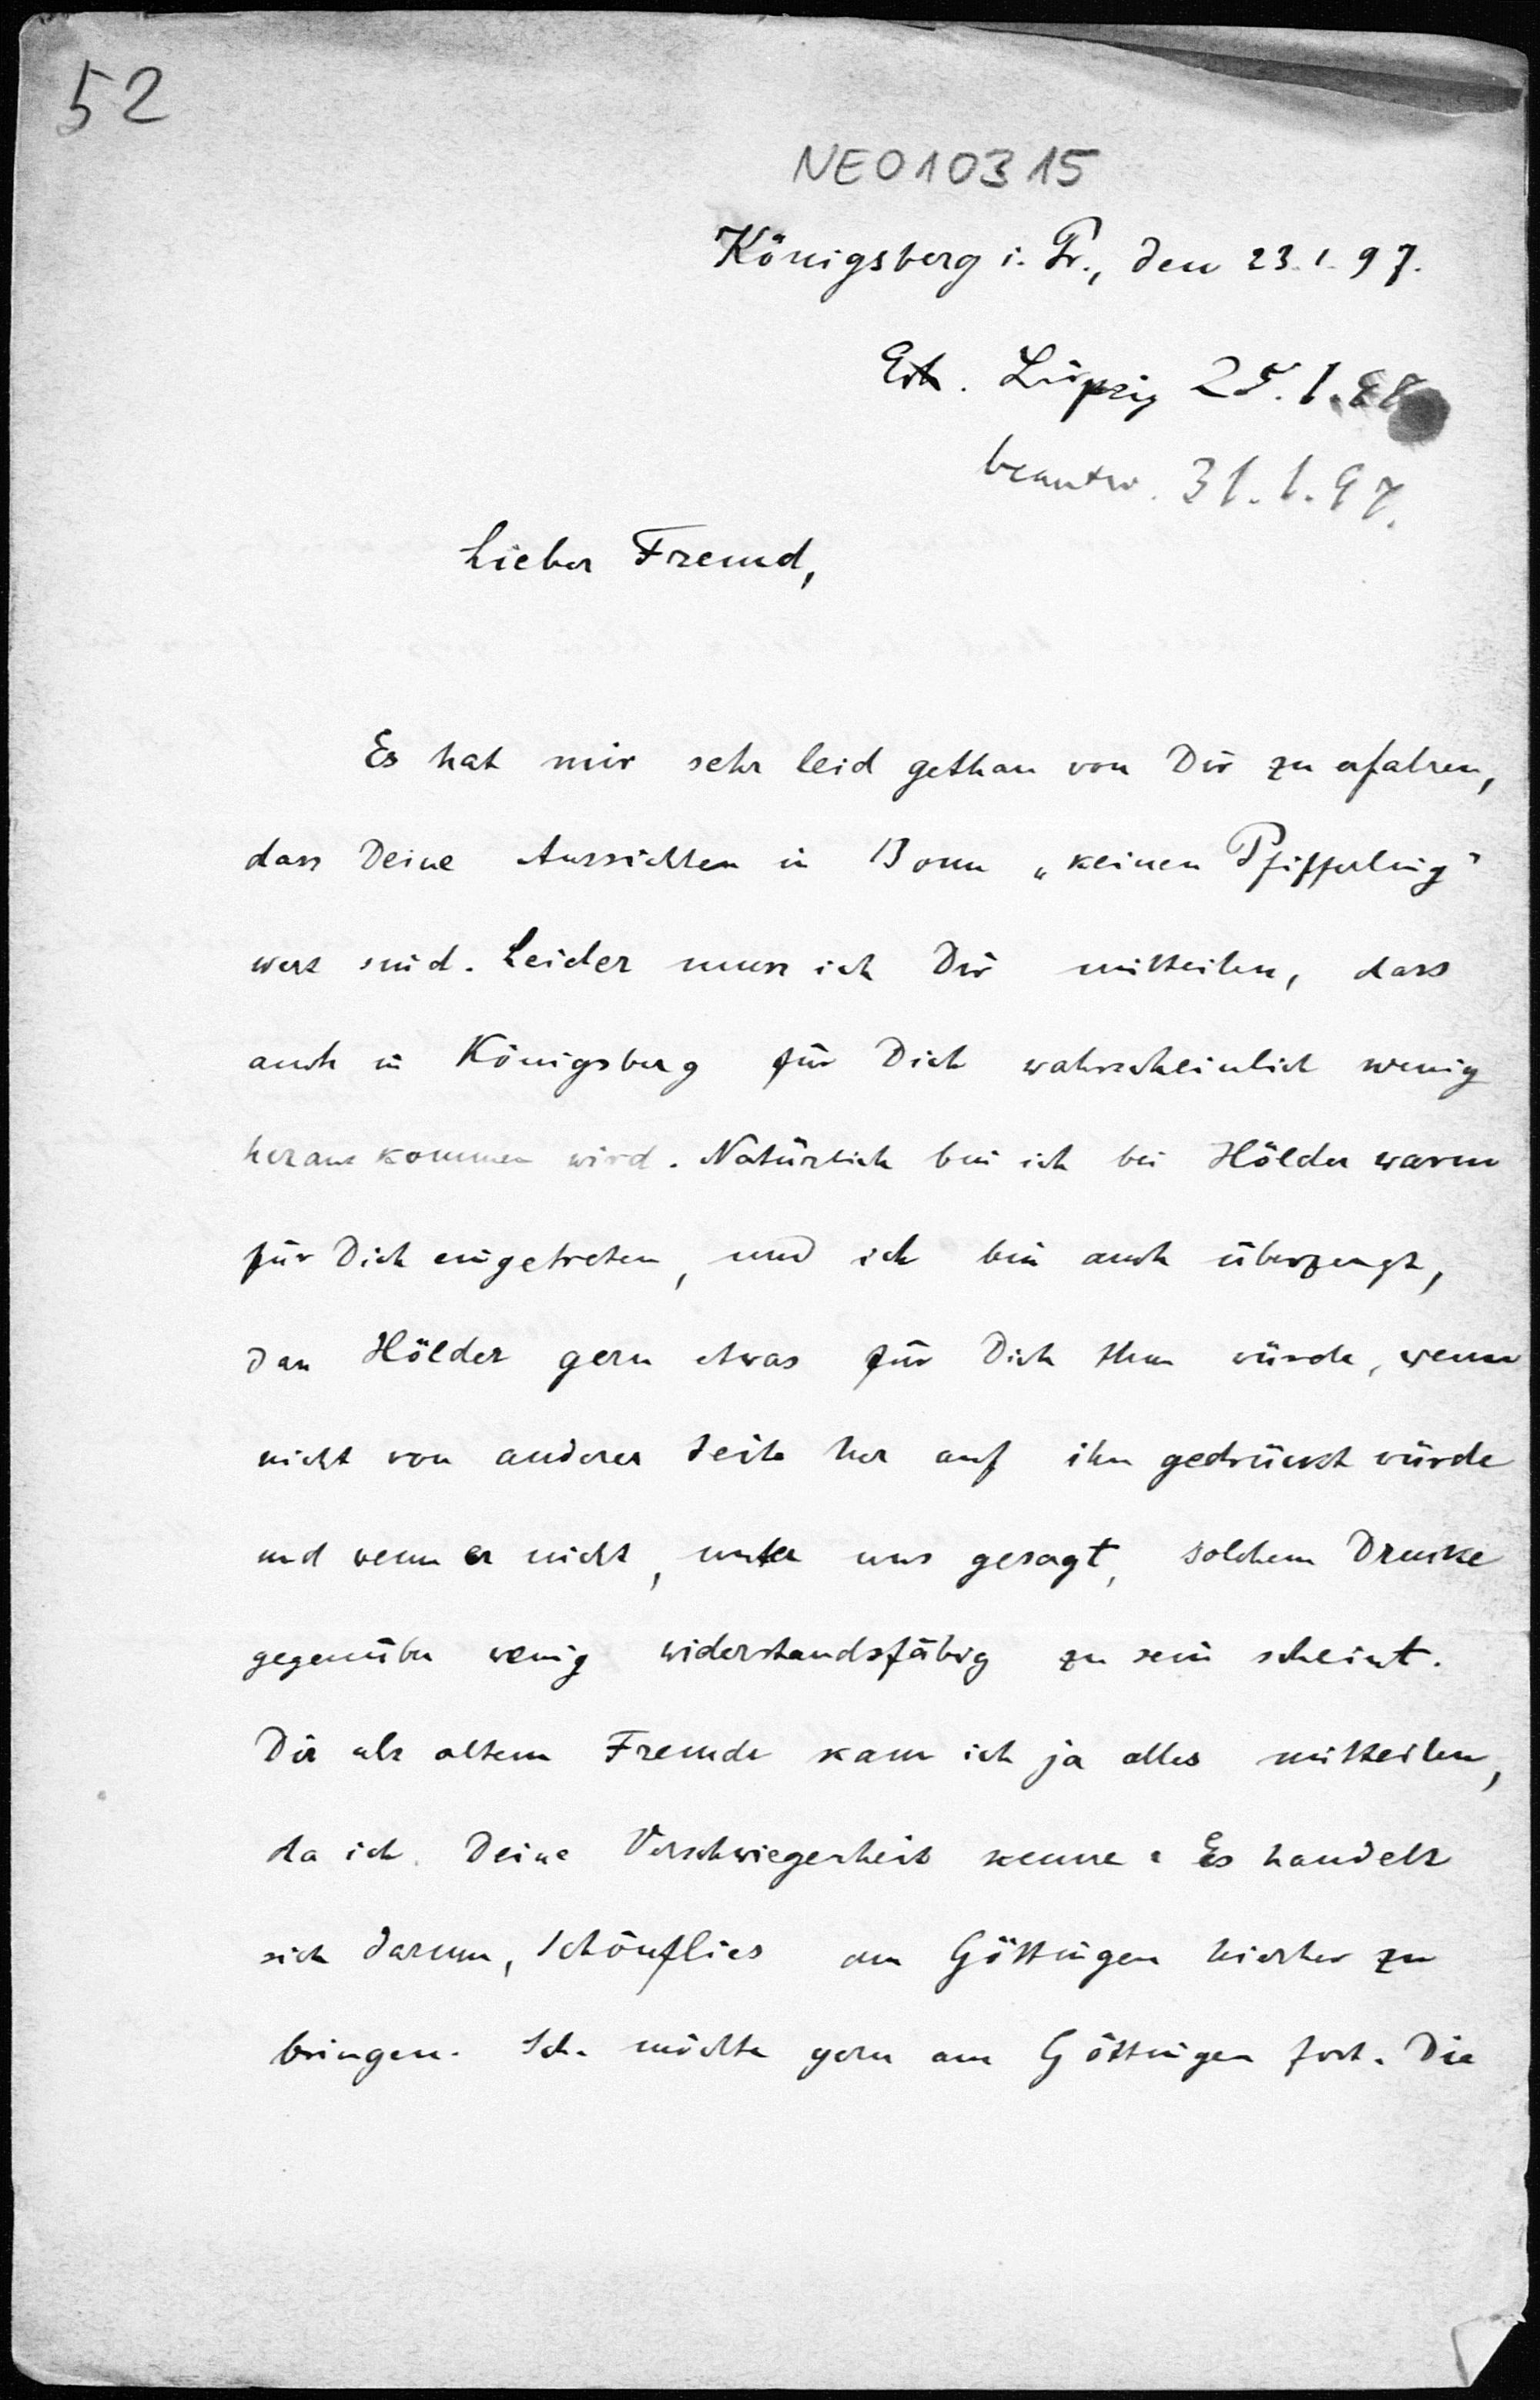 52
NE010315
Königsberg i. Pr., den 23.1.97.
Erh. Leipzig 25.1.
beantw. 31.1.97.
Lieber Freund,
Es hat mir sehr leid gethan von Dir zu erfahren,
dass Deine Aussichten in Bonn „keinen Pfifferling"
wert sind. Leider muss ich Dir mitteilen, dass
auch in Königsberg für Dich wahrscheinlich wenig
herauskommen wird. Natürlich bin ich bei Hölder warm
für Dich eingetreten, und ich bin auch überzeugt,
dass Hölder gern etwas für Dich thun würde, wenn
nicht von anderer Seite her auf ihn gedrückt würde
und wenn er nicht, unter uns gesagt, solchem Drucke
gegenüber wenig widerstandsfähig zu sein scheint.
Dir als altem Freunde kann ich ja alles mitteilen,
da ich Deine Verschwiegenheit kenne. Es handelt
sich darum, Schönflies aus Göttingen hierher zu
bringen. Sch. möchte gern aus Göttingen fort. Die